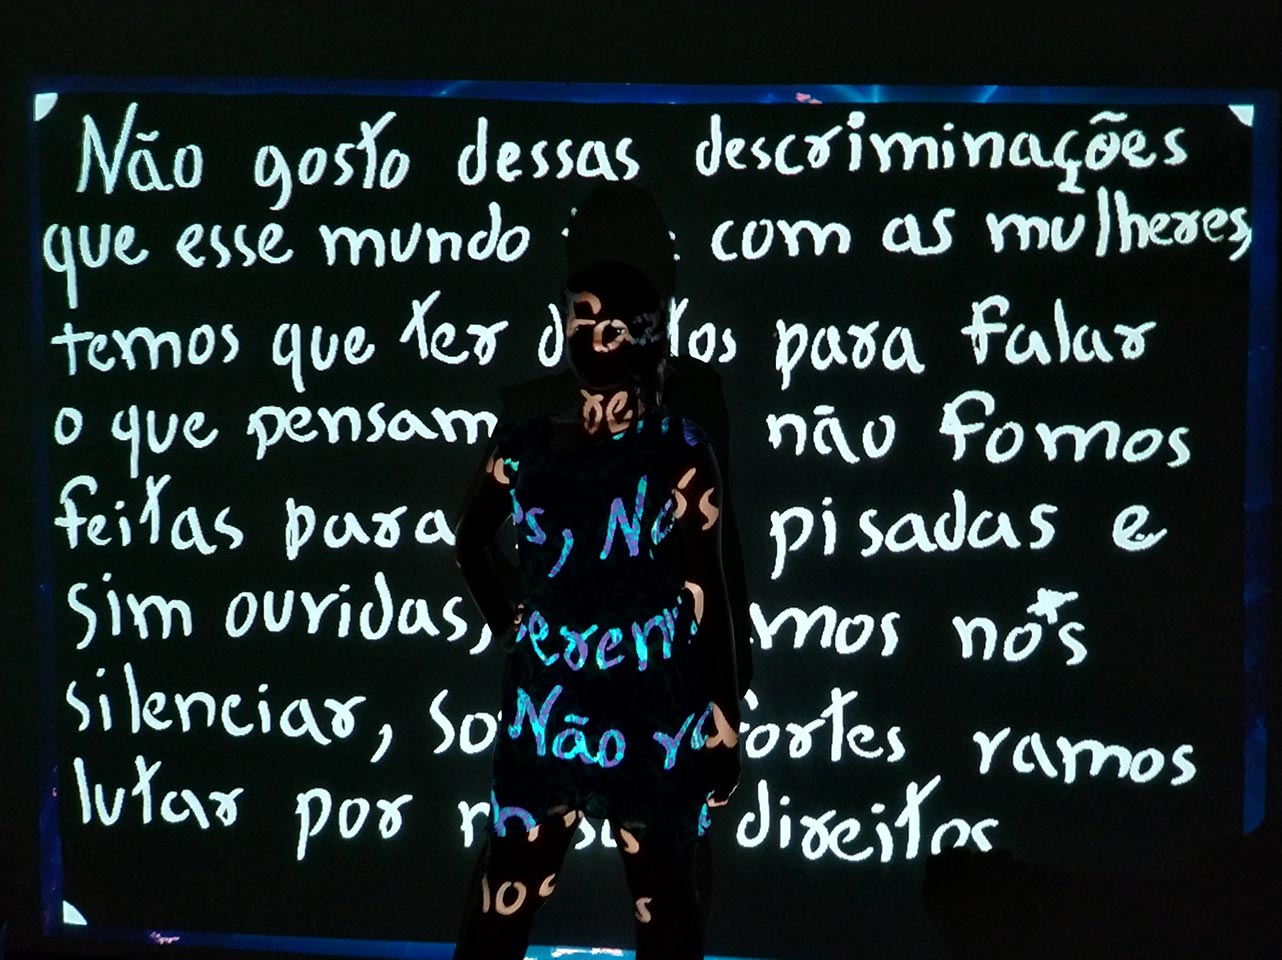 Não gosto dessas descriminações
que esse mundo com as mulheres,
temos que ter para falar
o que pensam não fomos
feitas para pisadas e
sim ouvidas, nós
silenciar, fortes ramos
lutar por direitos